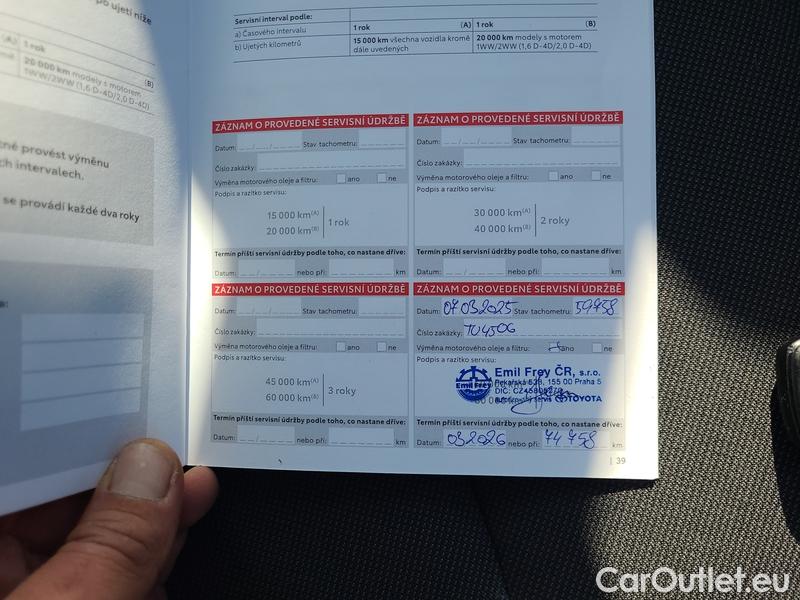 po ujetí níže
(A) 1 rok
(B)
20 000 km modely s motorem
1WW/2WW (1,6 D-4D/2,0 D-4D)
provést výměnu
intervalech.
se provádí každé dva roky
Servisní interval podle:
a) Časového intervalu 1 rok (A) 1 rok (B)
b) Ujetých kilometrů 15 000 km všechna vozidla kromě 20 000 km modely s motorem
dále uvedených 1WW/2WW (1,6 D-4D/2,0 D-4D)
ZÁZNAM O PROVEDENÉ SERVISNÍ ÚDRŽBĚ
Datum: Stav tachometru:
Číslo zakázky:
Výměna motorového oleje a filtru: ano ne
Podpis a razítko servisu:
15 000 km(A)
20 000 km(B)
1 rok
Termín příští servisní údržby podle toho, co nastane dříve:
Datum: nebo při: km
ZÁZNAM O PROVEDENÉ SERVISNÍ ÚDRŽBĚ
Datum: Stav tachometru:
Číslo zakázky:
Výměna motorového oleje a filtru: ano ne
Podpis a razítko servisu:
30 000 km(A)
40 000 km(B)
2 roky
Termín příští servisní údržby podle toho, co nastane dříve:
Datum: nebo při: km
ZÁZNAM O PROVEDENÉ SERVISNÍ ÚDRŽBĚ
Datum: Stav tachometru:
Číslo zakázky:
Výměna motorového oleje a filtru: ano ne
Podpis a razítko servisu:
45 000 km(A)
60 000 km(B)
3 roky
Termín příští servisní údržby podle toho, co nastane dříve:
Datum: nebo při: km
ZÁZNAM O PROVEDENÉ SERVISNÍ ÚDRŽBĚ
Datum: 07 03 2025 Stav tachometru: 59758
Číslo zakázky: TU4506
Výměna motorového oleje a filtru: ano ne
Podpis a razítko servisu:
Emil Frey
Emil Frey ČR, s.r.o.
Pekařská 628, 155 00 Praha 5
DIČ:
servis TOYOTA
Termín příští servisní údržby podle toho, co nastane dříve:
Datum: 03 2026 nebo při: 74 758 km
| 39
CarOutlet.eu